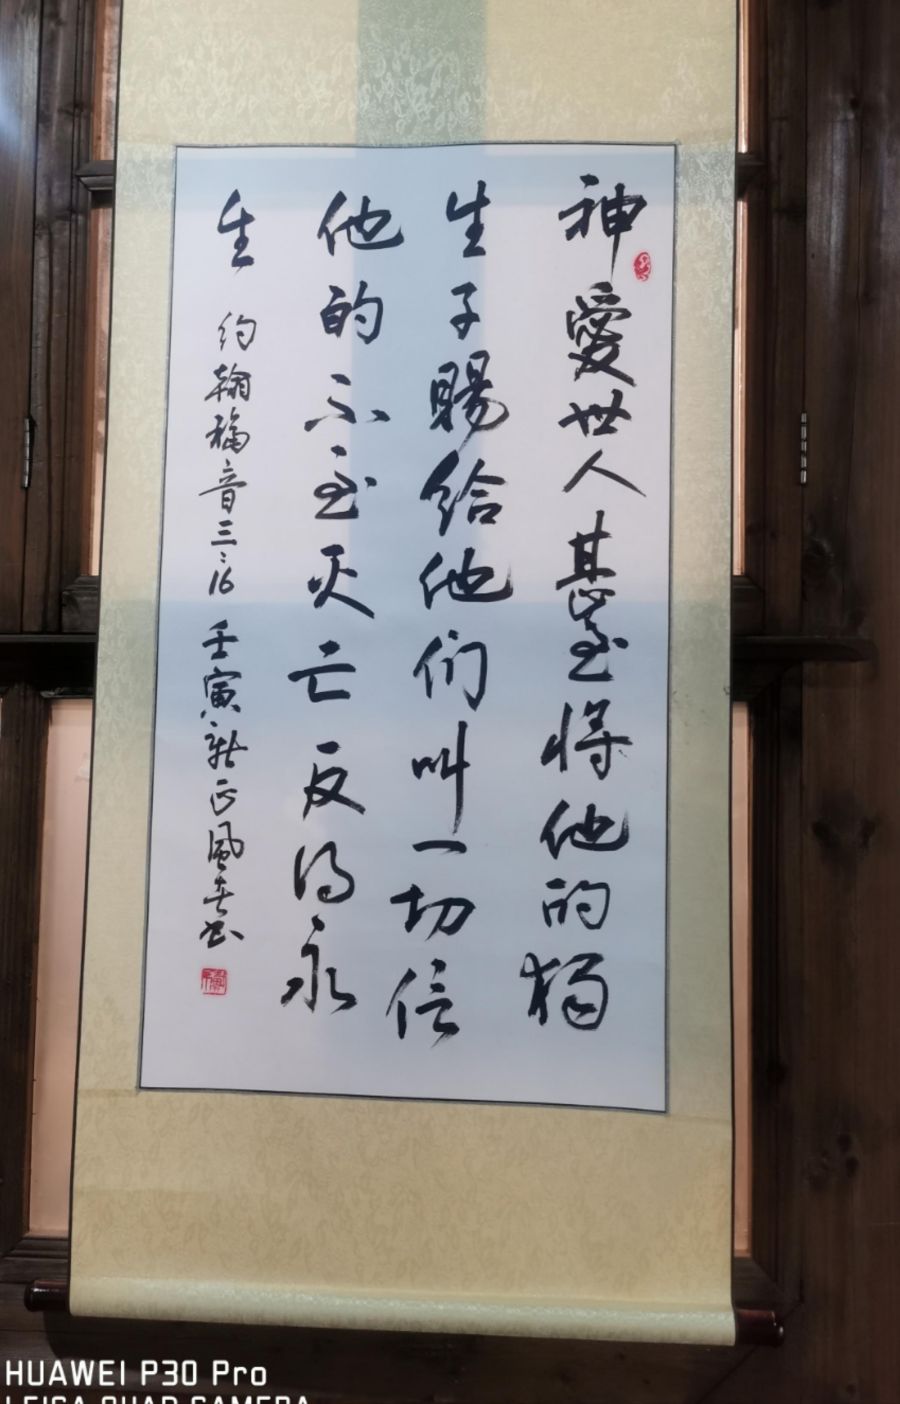 神愛世人甚至将他的独
生子賜给他们叫一切信
他的不至灭亡反得永
生
约翰福音三:16 壬寅新正風春书
HUAWEI P30 Pro
LEICA QUAD CAMERA